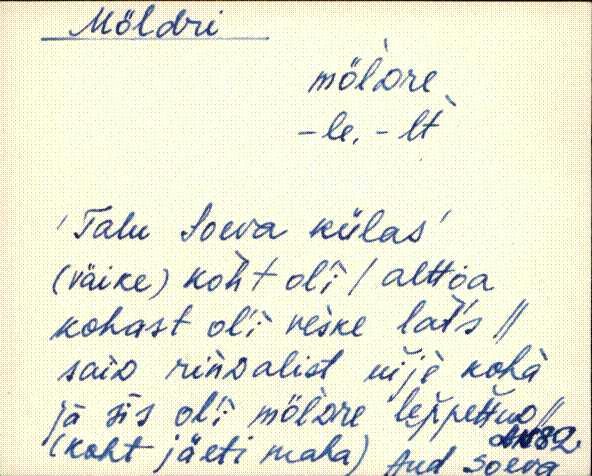 Möldri
möl̀dre
-le. -lt̀
'Talu Soeva külas'
(väike) kòht ol'i / alttoa
kohast ol'i veske lat's //
said rindalist uije kohà
jä sis ol'i möl̀dre leppettud //
(koht jäeti maha) And Soeva
82